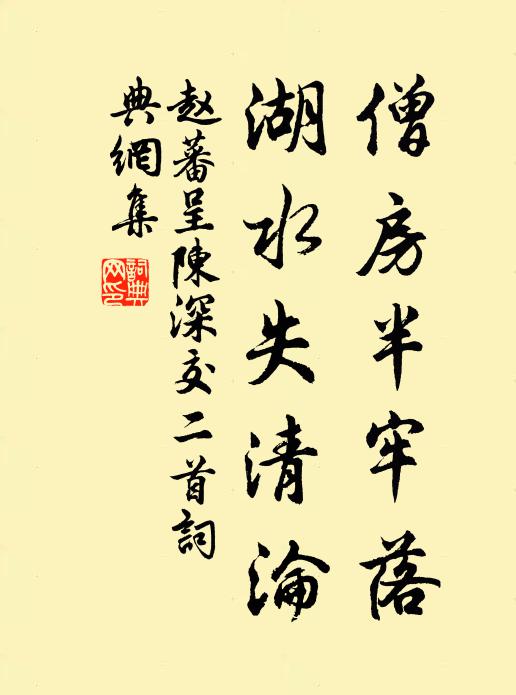 僧房半牢落
湖水失清淪
赵蕃呈陳深交二首詞
典網集
詞典网印